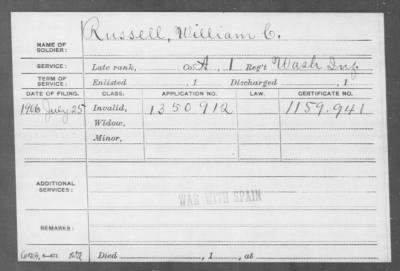 Russell, William C.
NAME OF SOLDIER:
SERVICE: Late rank, Co. A, 1 Reg't Wash Inf.
TERM OF SERVICE: Enlisted , 1 Discharged , 1
DATE OF FILING. CLASS. APPLICATION NO. LAW. CERTIFICATE NO.
1906 July 25 Invalid, 1350912 1159.941
Widow,
Minor,
ADDITIONAL SERVICES:
WAR WITH SPAIN
REMARKS:
Died , 1 , at